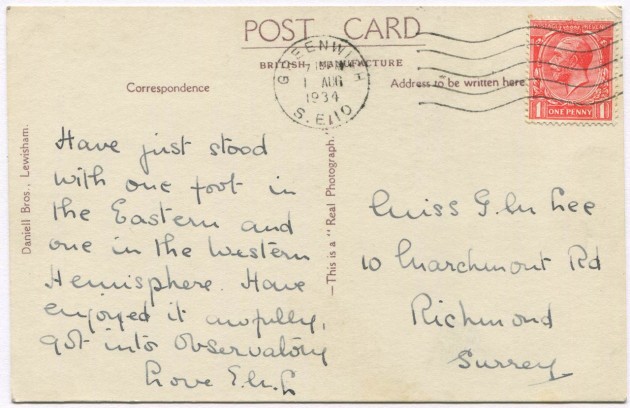 POST CARD
BRITISH MANUFACTURE
Correspondence
Address to be written here
GREENWICH
1 AUG
1934
S.E.10
ONE PENNY
Daniell Bros., Lewisham.
—This is a "Real Photograph."
Have just stood
with one foot in
the Eastern and
one in the Western
Hemisphere. Have
enjoyed it awfully,
got into Observatory
Love E.M.L
Miss G.M Lee
10 Marchmont Rd
Richmond
Surrey